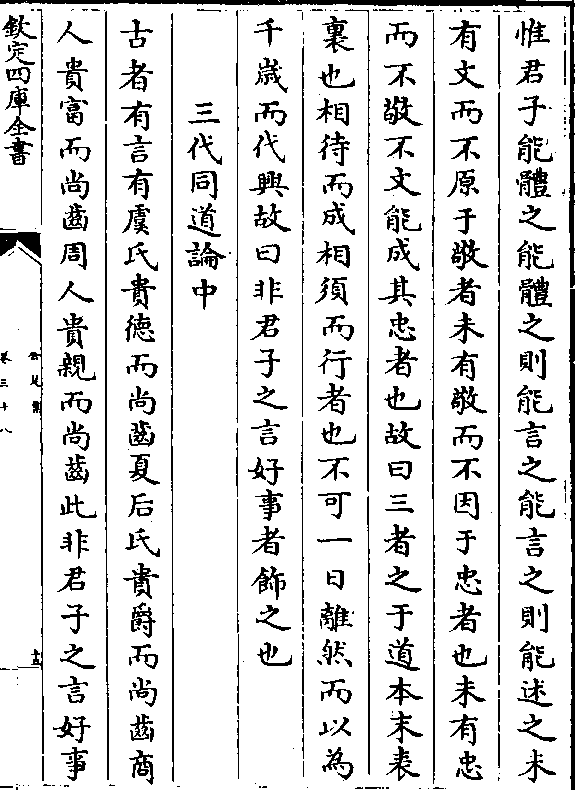 惟君子能體之能體之則能言之能言之則能述之未
有文而不原于敬者未有敬而不因于忠者也未有忠
而不敬不文能成其忠者也故曰三者之于道本末表
裏也相待而成相須而行者也不可一日離然而以為
千歲而代興故曰非君子之言好事者飾之也
三代同道論中
古者有言有虞氏貴德而尚齒夏后氏貴爵而尚齒商
人貴富而尚齒周人貴親而尚齒此非君子之言好事
欽定四庫全書
公是集
卷三十八